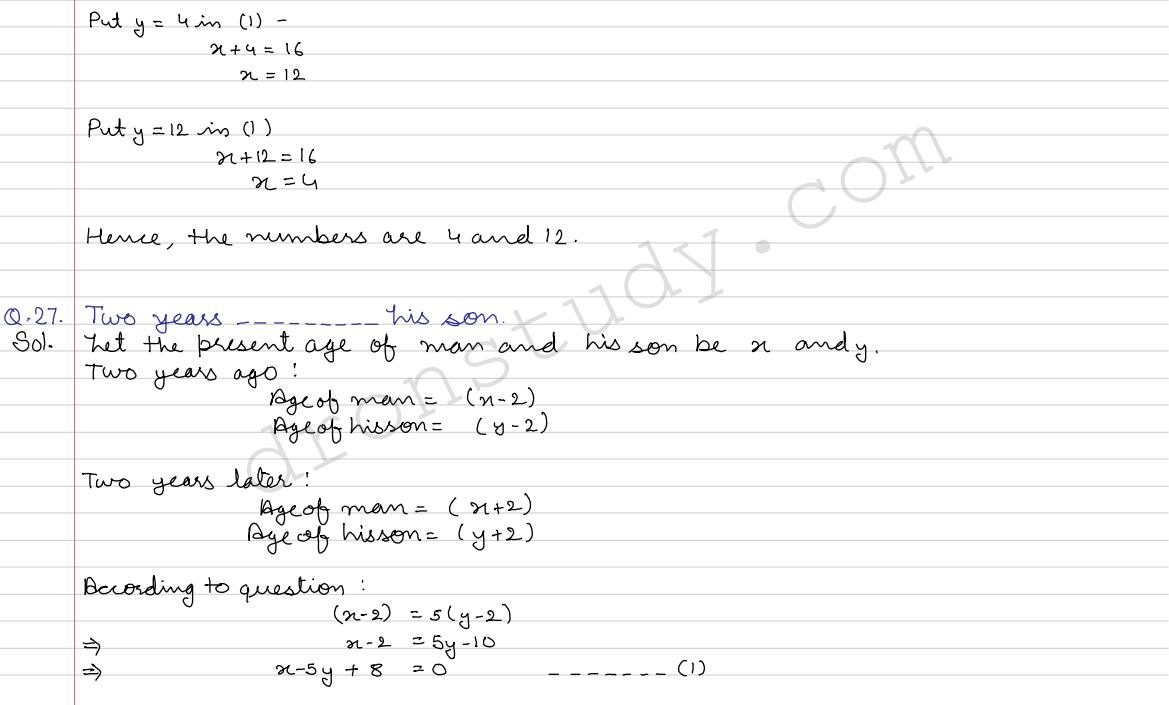 Put y = 4 in (1) -
x+4 = 16
x = 12
Put y = 12 in (1)
x+12 = 16
x = 4
Hence, the numbers are 4 and 12.
Q.27. Two years --------- his son.
Sol. Let the present age of man and his son be x and y.
Two years ago :
Age of man = (x-2)
Age of his son = (y-2)
Two years later :
Age of man = (x+2)
Age of his son = (y+2)
According to question :
(x-2) = 5(y-2)
⇒ x-2 = 5y-10
⇒ x-5y + 8 = 0 ------- (1)
dronstudy.com